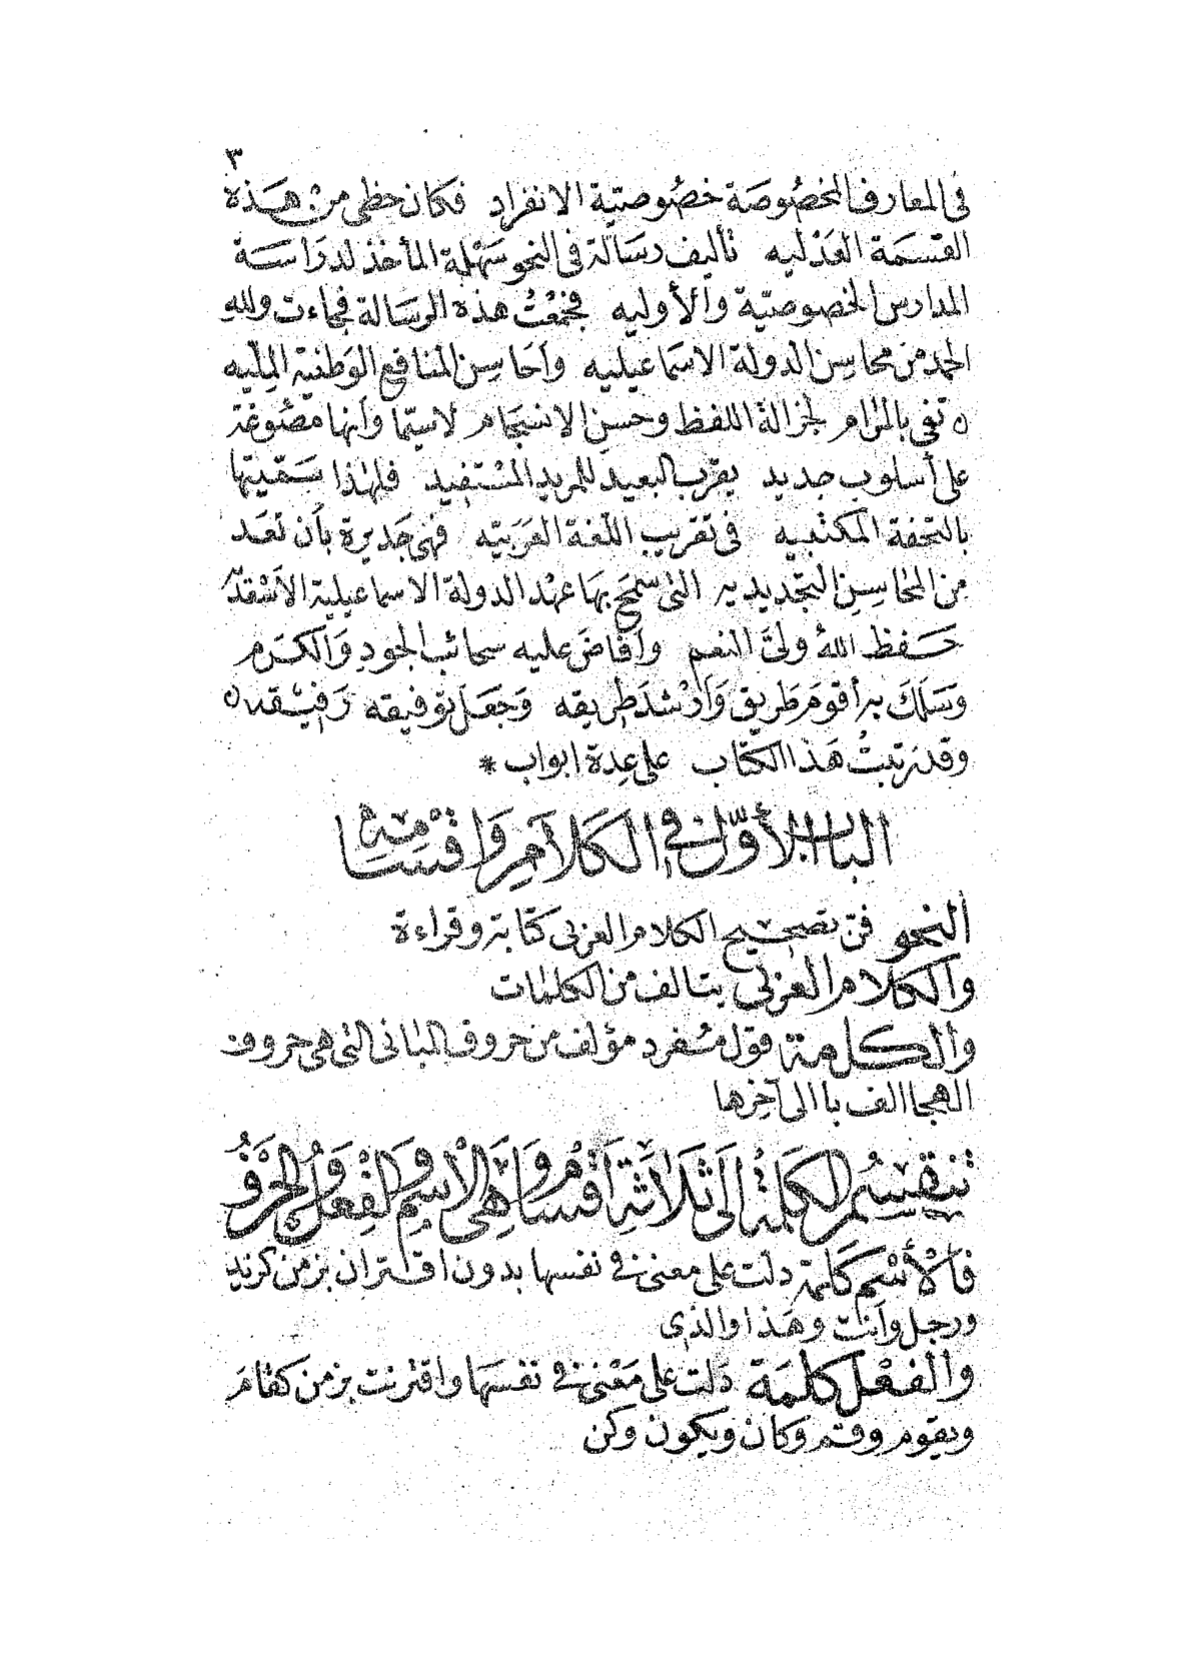 ٣
فى المعارف المخصوصة خصوصية الانفراد فكان حظى من هذه
القسمة العدليه تأليف رسالة فى النحو سهلة المأخذ لدراسة
المدارس الخصوصية والأوليه فجمعت هذه الرسالة فجاءت ولله
الحمد من محاسن الدولة الاسماعيليه وأحاسن المنافع الوطنية الملّيه
تفى بالمرام لجزالة اللفظ وحسن الانسجام لاسيّما وأنها مصنوغة
على أسلوب جديد يقرب البعيد للمريد المستفيد فلهذا سميتها
بالتحفة المكتبيه فى تقريب اللغة العربيّه فهى جديرة بأن تعد
من المحاسن التجديديه التى سمح بها عهد الدولة الاسماعيلية
حفظ الله ولىّ النعم وأفاض عليه سحائب الجود والكرم
وسلك به أقوم طريق وأرشد طريقه وجعل توفيقه رفيقه
وقد رتبت هذا الكتاب على عدة ابواب *
الباب الأوّل فى الكلام واقسامه
النحو فنّ تصحيح الكلام العربى كتابة وقراءة
والكلام العربى يتالف من الكلمات
والكلمة قول مفرد مؤلف من حروف المبانى التى هى حروف
الهجا الف با الى آخرها
تنقسم الكلمة الى ثلاثة أقسام وهى الاسم والفعل والحرف
فالأسم كلمة دلت على معنى فى نفسها بدون اقتران بزمن كزيد
ورجل وأنت وهذا والذى
والفعل كلمة دلت على معنى فى نفسها واقترنت بزمن كقام
ويقوم وقم وكان ويكون وكن